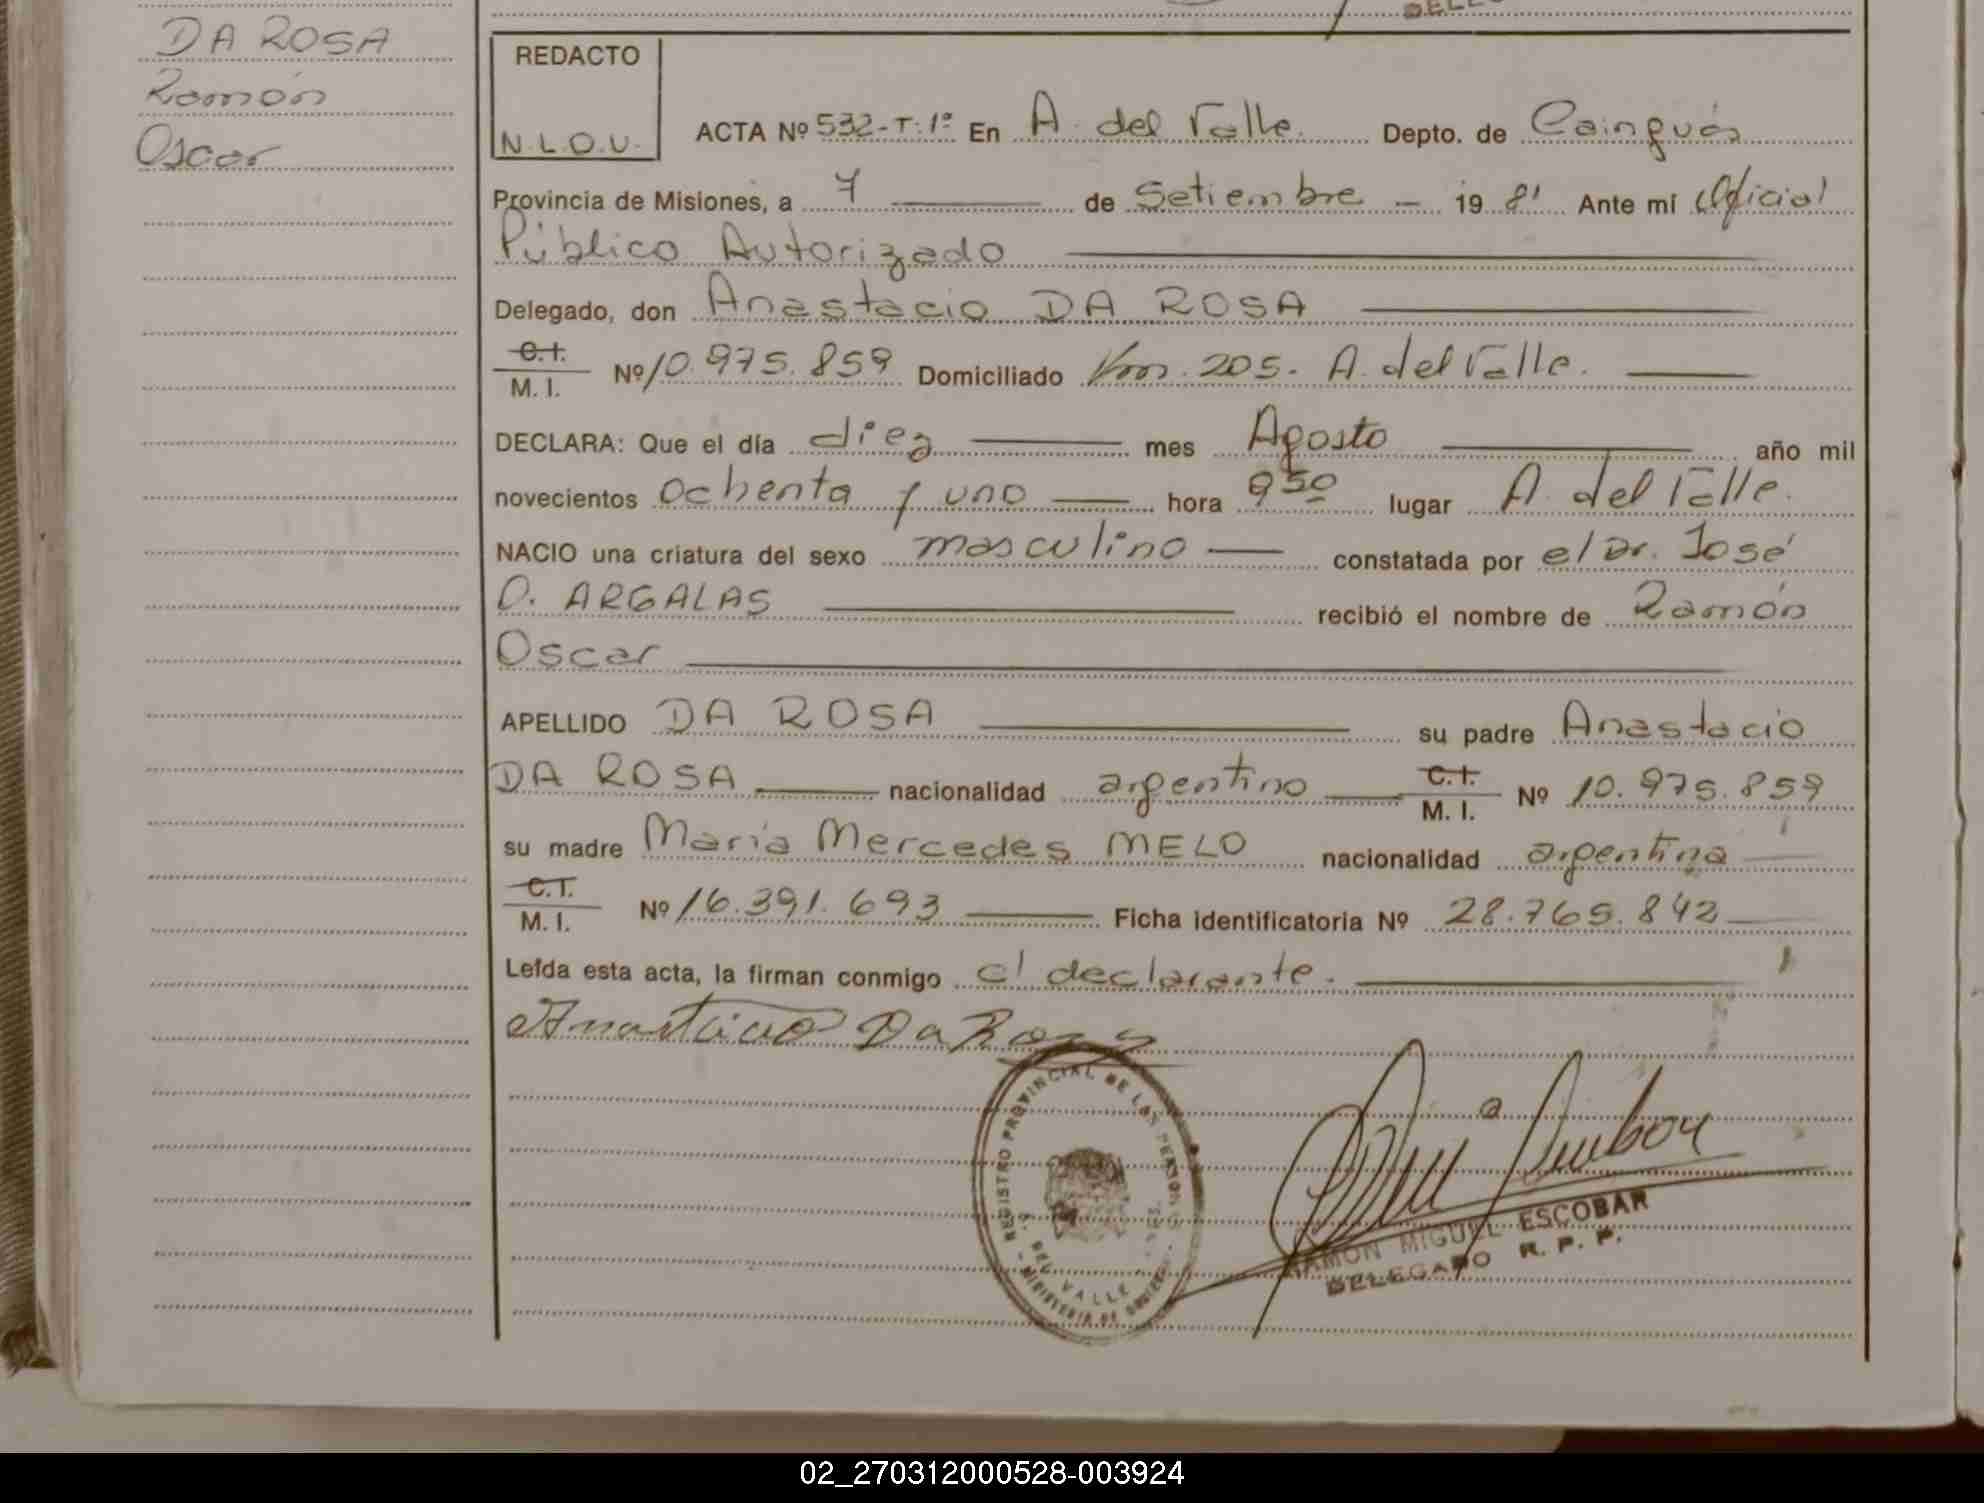 DA ROSA
Ramón
Oscar
REDACTO
N.L.O.U.
ACTA Nº 532-T:1º En A. del Valle. Depto. de Cainguás
Provincia de Misiones, a 7 de Setiembre - 19 81 Ante mi Oficial
Público Autorizado
Delegado, don Anastacio DA ROSA
C.I.
M. I. Nº 10.975.859 Domiciliado Km. 205. A. del Valle.
DECLARA: Que el día diez mes Agosto año mil
novecientos ochenta y uno hora 9 50 lugar A. del Valle.
NACIO una criatura del sexo masculino constatada por el Dr. José
O. ARGALAS recibió el nombre de Ramón
Oscar
APELLIDO DA ROSA su padre Anastacio
DA ROSA nacionalidad argentino C.I. M. I. Nº 10.975.859
su madre María Mercedes MELO nacionalidad argentina
C.I.
M. I. Nº 16.391.693 Ficha identificatoria Nº 28.765.842
Leída esta acta, la firman conmigo el declarante.
Anastacio Da Rosa
REGISTRO PROVINCIAL DE LAS PERSONAS
DEL VALLE
MINISTERIO DE GOBIERNO
RAMON MIGUEL ESCOBAR
DELEGADO R. P. P.
02_270312000528-003924